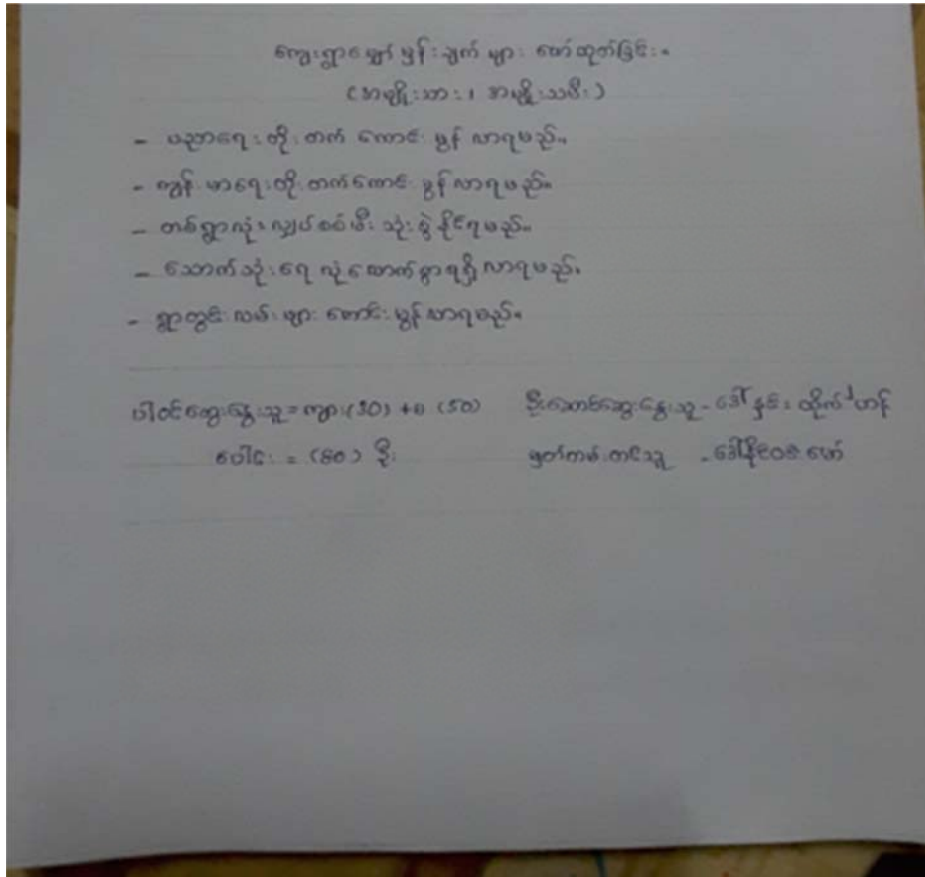 ကျေးရွာမျှော်မှန်းချက်များ ဖော်ထုတ်ခြင်း။
(အမျိုးသား၊ အမျိုးသမီး)
- ပညာရေးတိုးတက်ကောင်းမွန်လာရမည်။
- ကျန်းမာရေးတိုးတက်ကောင်းမွန်လာရမည်။
- တစ်ရွာလုံးလျှပ်စစ်မီးသုံးစွဲနိုင်ရမည်။
- သောက်သုံးရေလုံလောက်စွာရရှိလာရမည်။
- ရွာတွင်းလမ်းများကောင်းမွန်လာရမည်။
ပါဝင်ဆွေးနွေးသူ = ကျား(30) + မ (50) ဦးဆောင်ဆွေးနွေးသူ - ဒေါ်နှင်း
ပေါင်း = (80) ဦး မှတ်တမ်းတင်သူ -